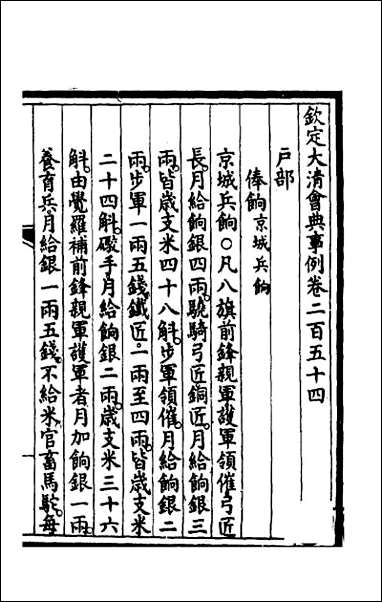 欽定大清會典事例卷二百五十四
戸部
俸餉京城兵餉
京城兵餉○凡八旗前鋒親軍護軍領催弓匠
長月給餉銀四兩驍騎弓匠銅匠月給餉銀三
兩皆歲支米四十八斛步軍領催月給餉銀二
兩步軍一兩五錢鐵匠一兩至四兩皆歲支米
二十四斛礮手月給餉銀二兩歲支米三十六
斛由覺羅補前鋒親軍護軍者月加餉銀一兩
養育兵月給銀一兩五錢不給米官畜馬駝每